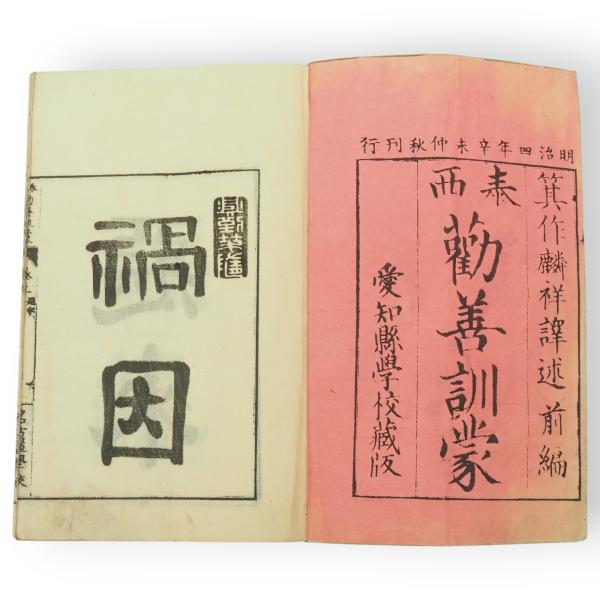 明治四年辛未仲秋刊行
箕作麟祥譯述前編
泰西
勸善訓蒙
愛知縣學校藏版
禍因